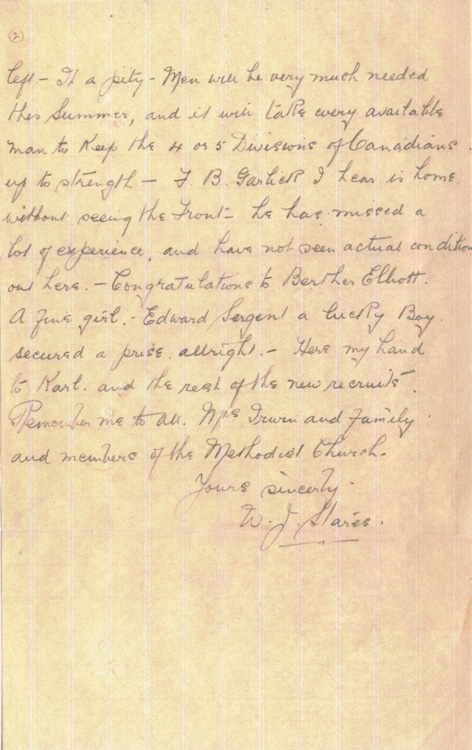 2
left - It a pity - Men will be very much needed
this Summer, and it will take every available
man to Keep the 4 or 5 Divisions of Canadians
up to strength - F B. Garlick I hear is home
without seeing the Front - he has missed a
lot of experience, and have not seen actual condition
out here. - Congratulations to Berther Elliott.
A fine girl. - Edward Sergent a lucky Boy.
secured a prise. allright. - Here my hand
to Karl. and the rest of the new recruits.
Remember me to all. Mrs Irwin and family
and members of the Methodist Church.
Yours sincerly.
W. J. Stares.